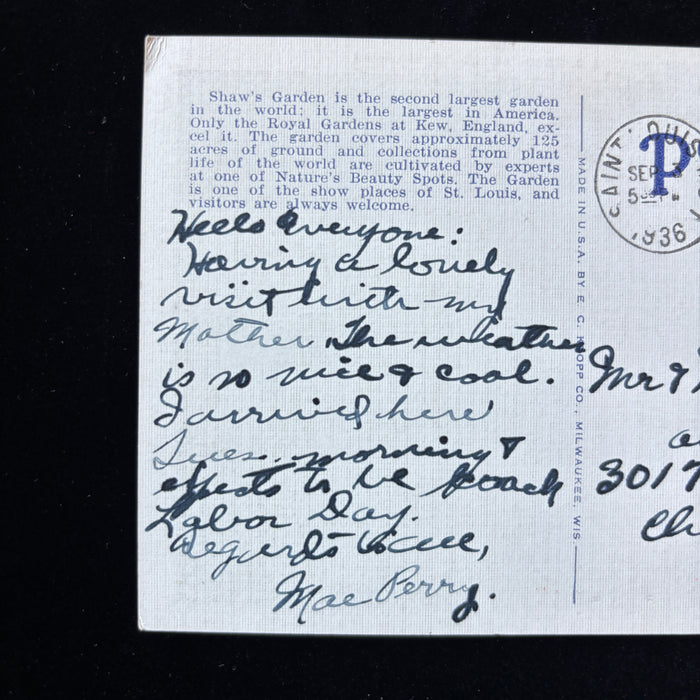 Shaw's Garden is the second largest garden
in the world; it is the largest in America.
Only the Royal Gardens at Kew, England, ex-
cel it. The garden covers approximately 125
acres of ground and collections from plant
life of the world are cultivated by experts
at one of Nature's Beauty Spots. The Garden
is one of the show places of St. Louis, and
visitors are always welcome.
Hello Everyone:
Having a lovely
visit with my
Mother. The weather
is so nice & cool.
I arrived here
Tues. morning &
expects to be back
Labor Day.
Regards to all,
Mae Perry.
MADE IN U.S.A. BY E. C. KROPP CO., MILWAUKEE, WIS
SAINT LOUIS
SEP 3
1936
P
Mr &
301
Ch